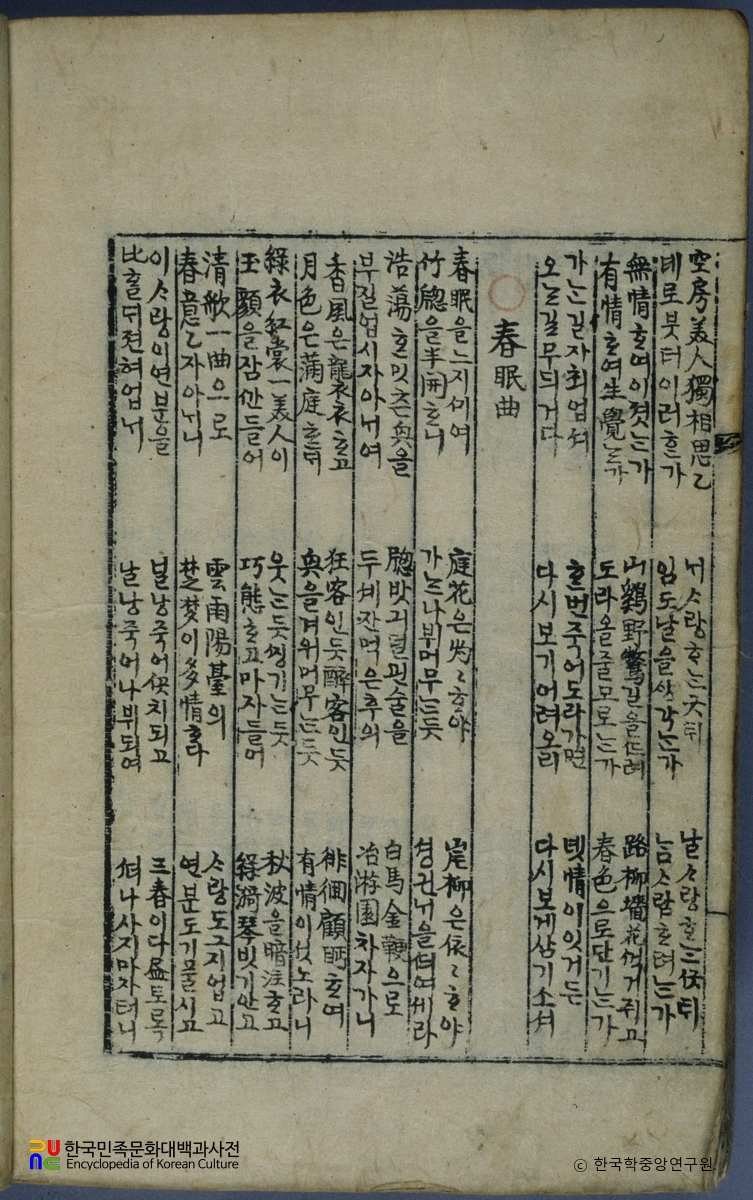 空房美人獨相思乙
녜로붓터이러ᄒᆞᆫ가
ᄂᆡᄉᆞ랑ᄒᆞᄂᆞᆫ곳ᄃᆡ
임도날을ᄉᆡᆼ각ᄂᆞᆫ가
날ᄉᆞ랑ᄒᆞ든곳ᄃᆡ
ᄂᆞᆷᄉᆞ랑ᄒᆞ려ᄂᆞᆫ가
無情ᄒᆞ여이졋ᄂᆞᆫ가
有情ᄒᆞ여生覺ᄂᆞᆫ가
山鷄野鶩길을드려
도라올줄모로ᄂᆞᆫ가
路柳墻花ᄭᅥᆨ거쥐고
春色으로단기ᄂᆞᆫ가
가ᄂᆞᆫ길자최업셔
오ᄂᆞᆫ길무듸거다
ᄒᆞᆫ번죽어도라가면
다시보기어려오리
녯情이잇거든
다시보게삼기소셔
春眠曲
春眠을느지ᄭᆡ여
竹窓을半開ᄒᆞ니
庭花은灼〻ᄒᆞ야
가ᄂᆞᆫ나뷔머무ᄂᆞᆫ듯
岸柳은依〻ᄒᆞ야
셩긘ᄂᆡ을ᄯᅴ여셰라
浩蕩ᄒᆞᆫ밋츤興을
부졀업시자아ᄂᆡ여
窓밧긔덜괸술을
두세잔먹은후의
白馬金鞭으로
冶游園차자가니
香風은襲衣ᄒᆞ고
月色은滿庭ᄒᆞᆫᄃᆡ
狂客인듯醉客인듯
興을겨워머무ᄂᆞᆫ듯
徘徊顧眄ᄒᆞ여
有情이셧노라니
綠衣紅裳一美人이
玉顔을잠ᄭᅡᆫ들어
웃ᄂᆞᆫ듯ᄶᅵᆼ기ᄂᆞᆫ듯
巧態ᄒᆞ고마자들어
秋波을暗注ᄒᆞ고
綠綺琴빗기안고
淸歌一曲으로
春意乙자아ᄂᆡ니
雲雨陽臺의
楚夢이多情ᄒᆞ다
ᄉᆞ랑도그지업고
연분도기풀시고
이ᄉᆞ랑이연분을
比ᄒᆞᆯᄃᆡ젼혀업ᄂᆡ
널낭죽어ᄭᅩᆺ치되고
날낭죽어나뷔되여
三春이다盡토록
ᄯᅥ나사지마자터니
한국민족문화대백과사전
Encyclopedia of Korean Culture
ⓒ 한국학중앙연구원